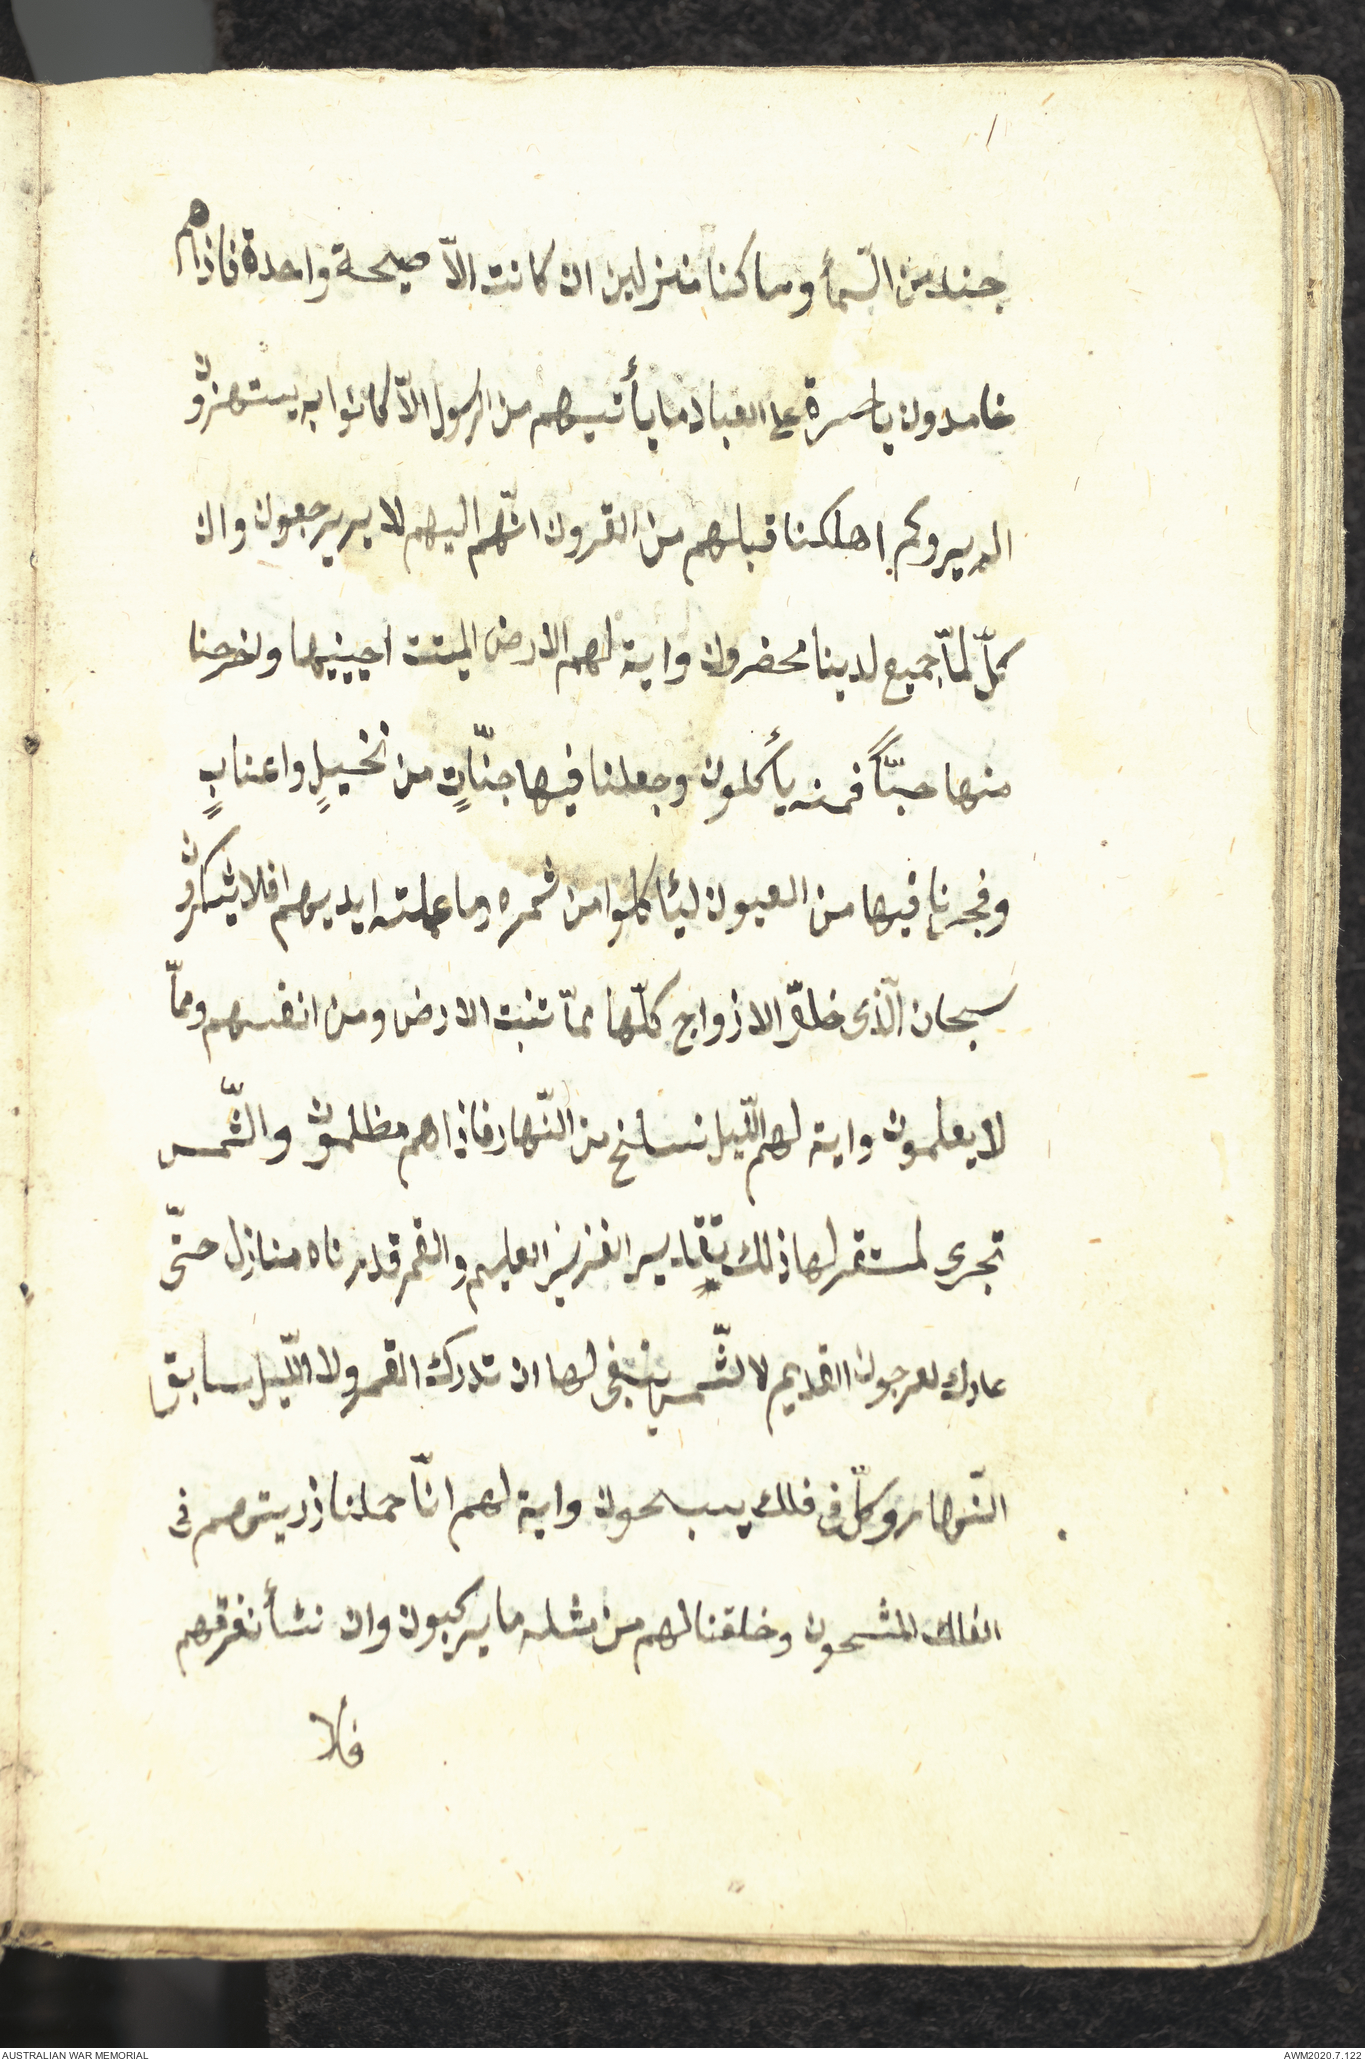 جند من السّمأ وما كنا منزلين ان كانت الاّ صيحة واحدة فاذاهم
خامدون ياحسرة على العباد ما يأتيهم من الرسول الاّ كانوا به يستهزؤن
الم يروكم اهلكنا قبلهم من القرون انّهم اليهم لا ير يرجعون وان
كلّ لمّا جميع لدينا محضرون واية لهم الارض الميتت احيينيها واخرجنا
منها حبّاً فمنه يأكلون وجعلنا فيها جنّاتٍ من نخيلٍ واعنابٍ
وفجرنا فيها من العيون ليئاكلوا من ثمره وما عملته ايديهم افلا يشكرون
سبحان الّذى خلق الازواج كلّها ممّا تنبت الارض ومن انفسهم وممّا
لا يعلمون واية لهم الّيل نسلخ من النّهار فاذاهم مظلمون والشّمس
تجرى لمستقر لها ذلك تقدير العزيز العليم والقمر قدرناه منازل حتّى
عادك لعرجون القديم لا لشّمس ينبغى لها ان تدرك القمر ولا الّيل سابق
النّهار وكلّ فى فلك يسبحون واية لهم انّا حملنا ذريتهم فى
الفلك المشحون وخلقنا لهم من مثله ما يركبون وان نشأ نغرقهم
فلا
AUSTRALIAN WAR MEMORIAL
AWM2020.7.122